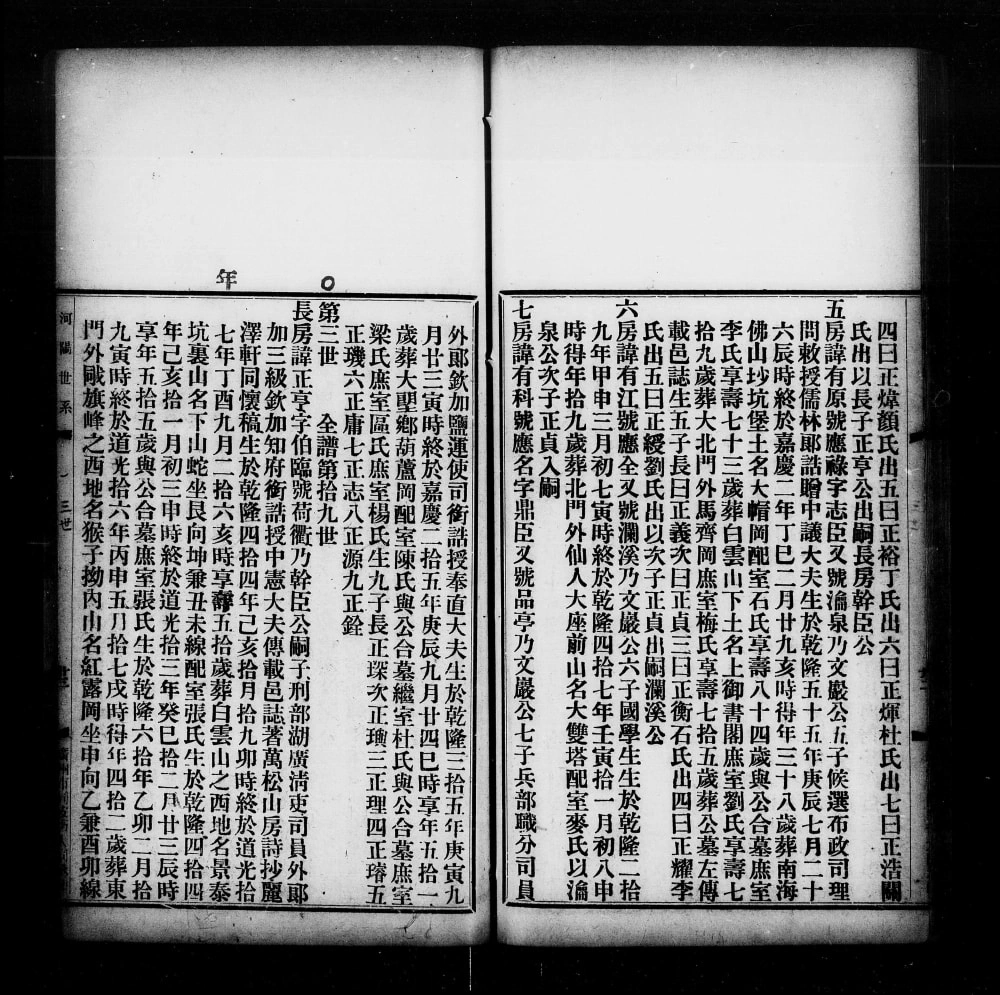 四曰正煒顏氏出五曰正裕丁氏出六曰正煇杜氏出七曰正浩關
氏出以長子正亭公出嗣長房幹臣公
五房諱有原號應祿字志臣又號瀹泉乃文嚴公五子候選布政司理
問敕授儒林郎誥贈中議大夫生於乾隆五十五年庚辰七月二十
六辰時終於嘉慶二年丁巳二月廿九亥時得年三十八歲葬南海
佛山坋坑堡土名大帽岡配室石氏享壽八十四歲與公合墓庶室
李氏享壽七十三歲葬白雲山下土名上御書閣庶室劉氏享壽七
拾九歲葬大北門外馬齊岡庶室梅氏享壽七拾五歲葬公墓左傳
載邑誌生五子長曰正義次曰正貞三曰正衡石氏出四曰正耀李
氏出五曰正綬劉氏出以次子正貞出嗣瀾溪公
六房諱有江號應全又號瀾溪乃文嚴公六子國學生生於乾隆二拾
九年甲申三月初七寅時終於乾隆四拾七年壬寅拾一月初八申
時得年拾九歲葬北門外仙人大座前山名大雙塔配室麥氏以瀹
泉公次子正貞入嗣
七房諱有科號應名字鼎臣又號品亭乃文嚴公七子兵部職方司員
年
外郎欽加鹽運使司銜誥授奉直大夫生於乾隆三拾五年庚寅九
月廿三寅時終於嘉慶二拾五年庚辰九月廿四巳時享年五拾一
歲葬大壆鄉葫蘆岡配室陳氏與公合墓繼室杜氏與公合墓庶室
梁氏庶室區氏庶室楊氏生九子長正琛次正璁三正理四正璿五
正璣六正庸七正志八正源九正銓
第三世 全譜第拾九世
長房諱正亨字伯臨號荷衢乃幹臣公嗣子刑部湖廣清吏司員外郎
加三級欽加知府銜誥授中憲大夫傳載邑誌著萬松山房詩抄麗
澤軒同懷稿生於乾隆四拾四年己亥拾月拾九卯時終於道光拾
七年丁酉九月二拾六亥時享壽五拾歲葬白雲山之西地名景泰
坑裏山名下山蛇坐艮向坤兼丑未線配室張氏生於乾隆四拾四
年己亥拾一月初三申時終於道光拾三年癸巳拾二月廿三辰時
享年五拾五歲與公合墓庶室張氏生於乾隆六拾年乙卯二月拾
九寅時終於道光拾六年丙申五月拾七戌時得年四拾二歲葬東
門外戙旗峰之西地名猴子拗內山名紅露岡坐申向乙兼酉卯線
河關世系
三世